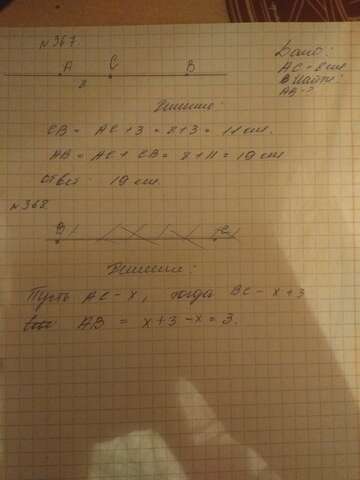 №367
Дано:
A C B
AC - 8 см
8
Найти:
AB - ?
Решение:
CB = AC + 3 = 8 + 3 = 11 см.
AB = AC + CB = 8 + 11 = 19 см
Ответ: 19 см.
№368
B
Решение:
Пусть AC - x, тогда BC - x + 3
AB = x + 3 - x = 3.